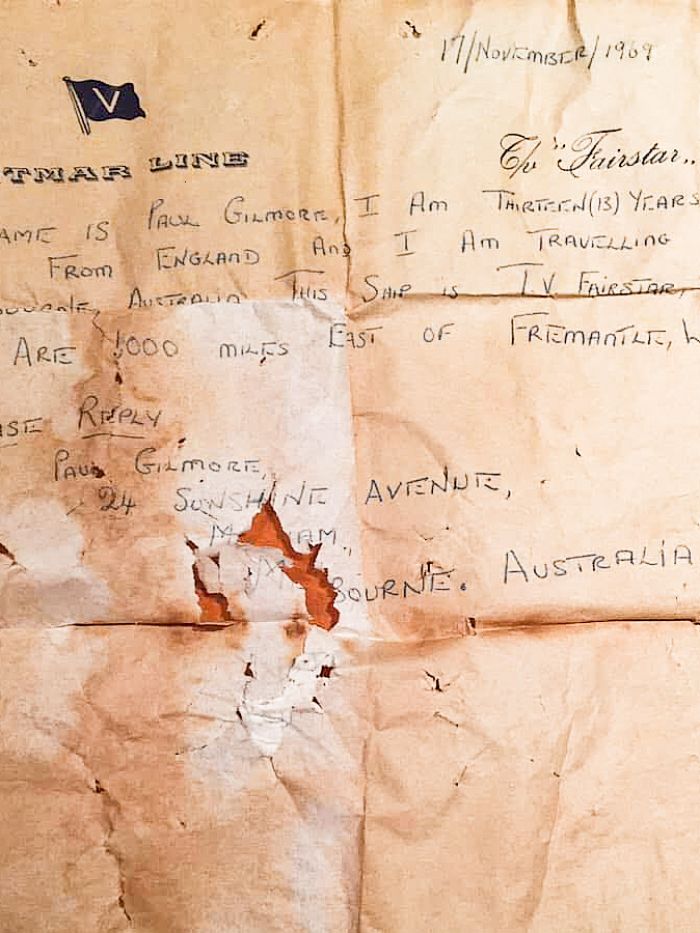 17/NOVEMBER/1969
V
TMAR LINE
T/v "Fairstar"
AME IS PAUL GILMORE, I AM THIRTEEN(13) YEARS
FROM ENGLAND AND I AM TRAVELLING
OURNE, AUSTRALIA THIS SHIP IS T.V FAIRSTAR,
ARE 1000 MILES EAST OF FREMANTLE, W
ASE REPLY
PAUL GILMORE,
24 SUNSHINE AVENUE,
M AM,
M BOURNE. AUSTRALIA